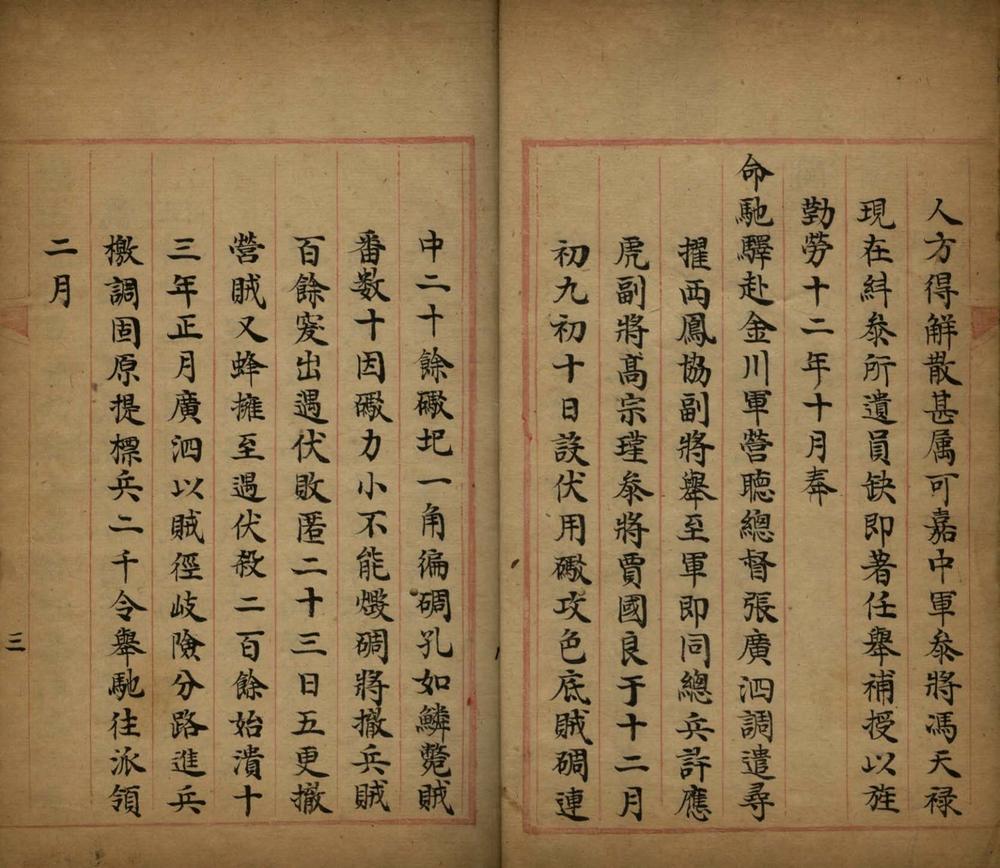 人方得解散甚属可嘉中軍叅將馮天禄
現在紏叅所遺員缺即著任舉補授以旌
勤勞十二年十月奉
命馳驛赴金川軍營聽總督張廣泗調遣尋
擢西鳳協副將舉至軍即同總兵許應
虎副將髙宗瑾叅將賈國良于十二月
初九初十日設伏用礮攻色底賊碉連
中二十餘礮圯一角徧碉孔如鱗斃賊
番数十因礮力小不能燬碉將撤兵賊
百餘突出遇伏敗匿二十三日五更撤
營賊又蜂擁至遇伏殺二百餘始潰十
三年正月廣泗以賊徑岐險分路進兵
檄調固原提標兵二千令舉馳往派領
二月
三